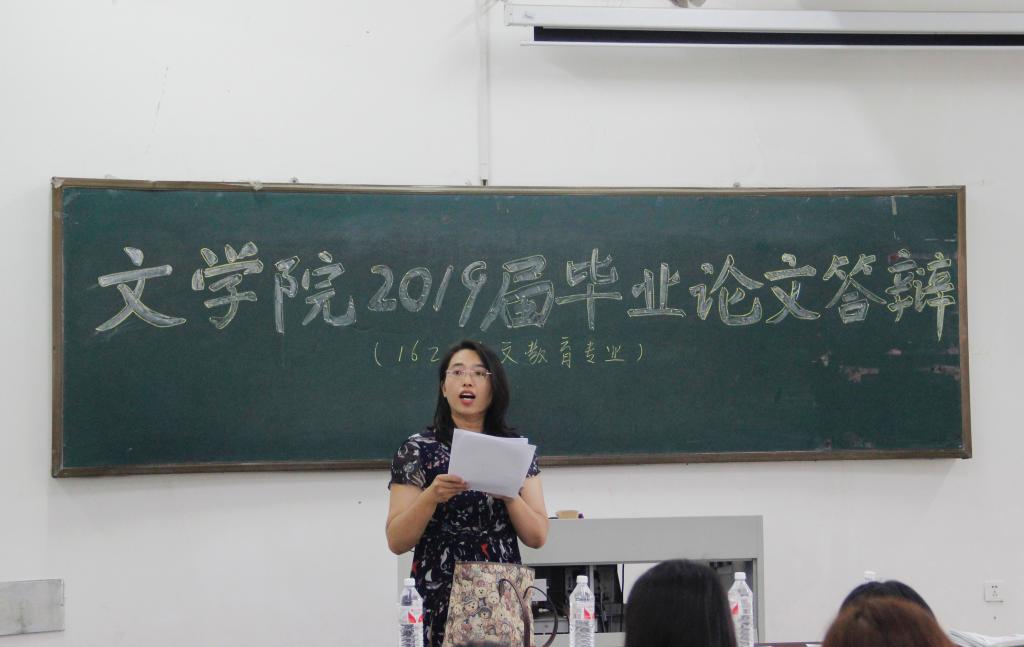 文学院2019届毕业论文答辩
(162 文教育专业)